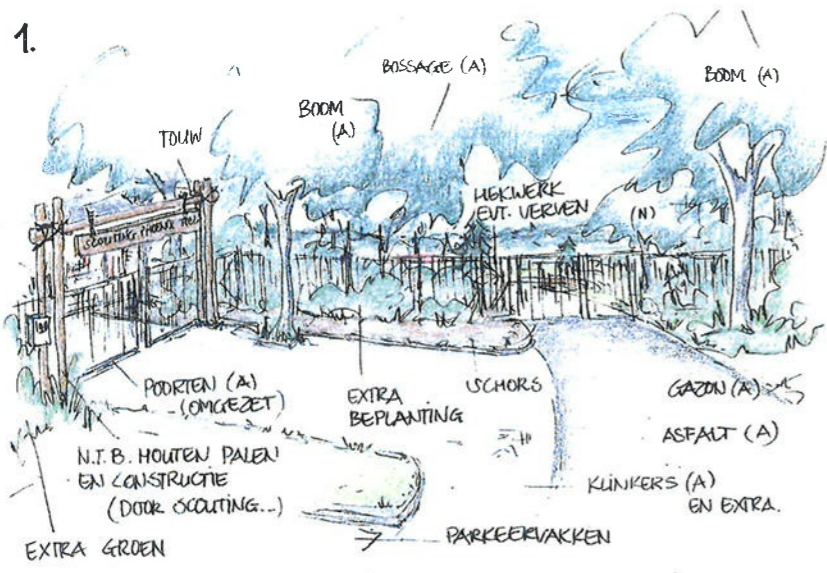 1.
BOSSAGE (A)
BOOM (A)
BOOM
(A)
TOUW
HEKWERK
EVT. VERVEN
(N)
SCOUTING
POORTEN (A)
(OMGEZET)
EXTRA
BEPLANTING
SCHORS
GAZON (A)
ASFALT (A)
N.T.B. HOUTEN PALEN
EN CONSTRUCTIE
(DOOR SCOUTING...)
KLINKERS (A)
EN EXTRA.
PARKEERVAKKEN
EXTRA GROEN